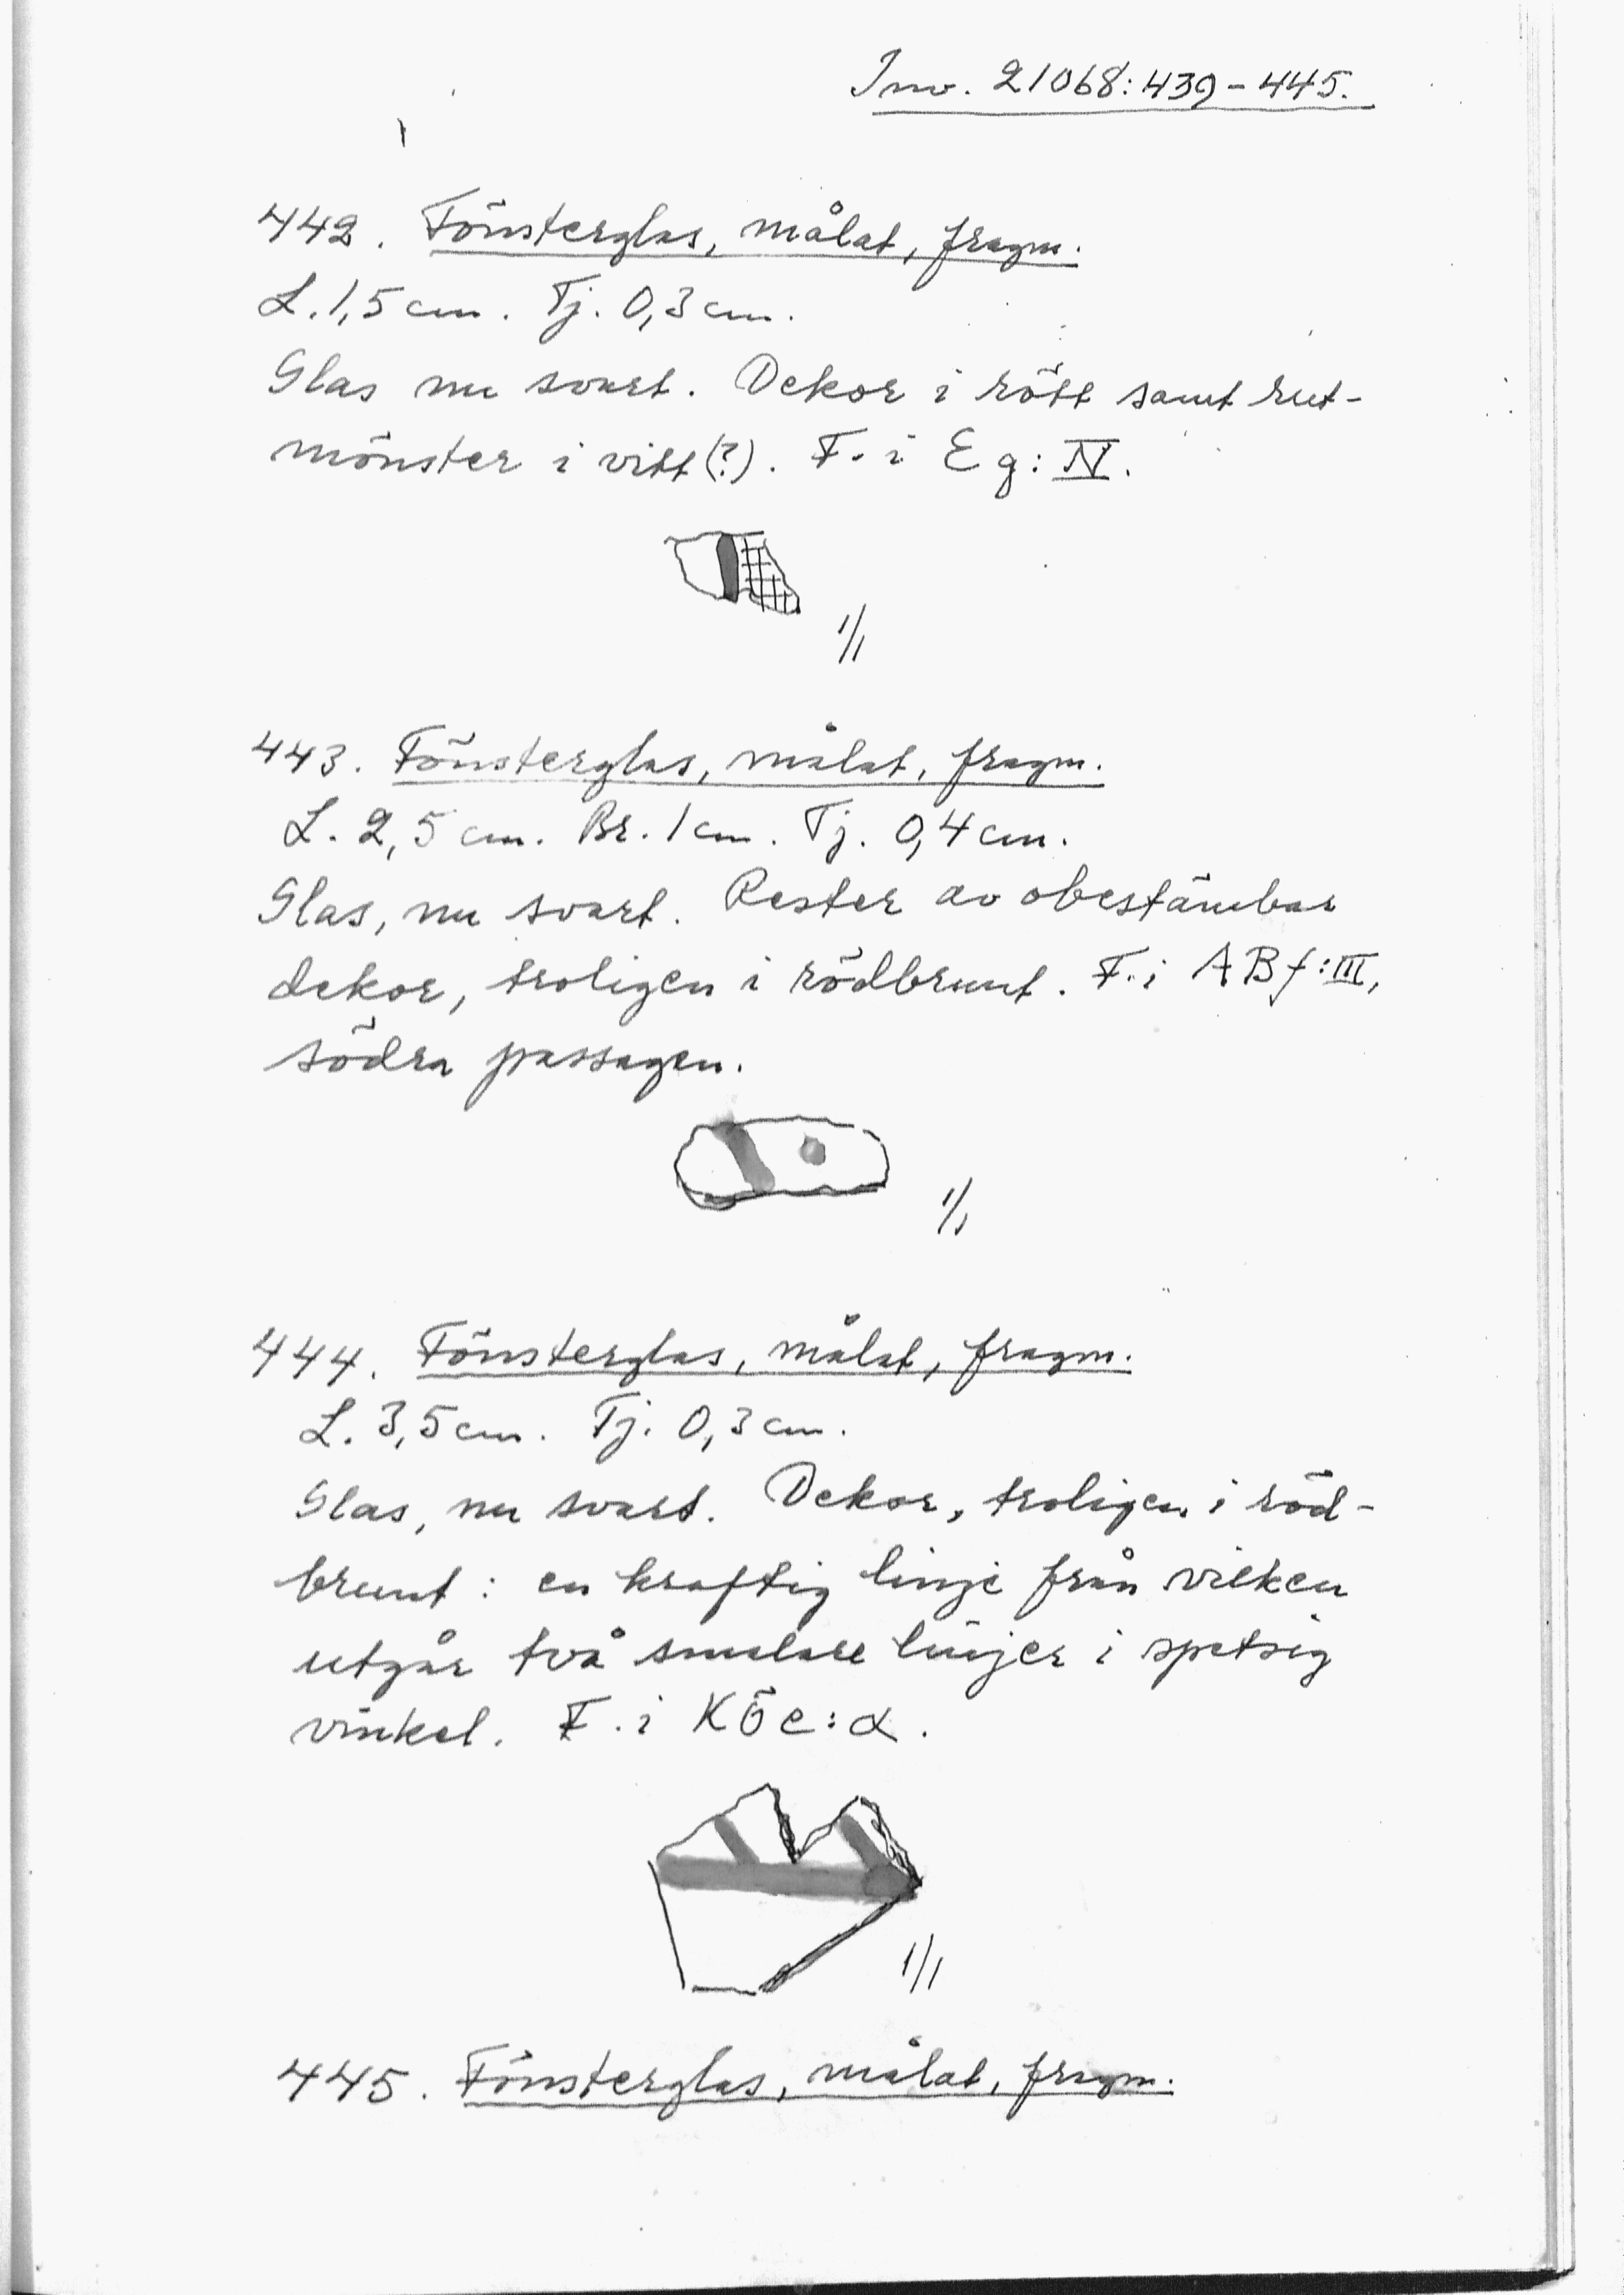 Inv. 21068:439-445.
442. Fönsterglas, målat, fragm.
L. 1,5 cm. Tj. 0,3 cm.
Glas nu svart. Dekor i rött samt rut-
mönster i vitt(?). F. i Eg: IV.
1/1
443. Fönsterglas, målat, fragm.
L. 2,5 cm. Br. 1 cm. Tj. 0,4 cm.
Glas, nu svart. Rester av obestämbar
dekor, troligen i rödbrunt. F. i ABf: III,
södra passagen.
1/1
444. Fönsterglas, målat, fragm.
L. 3,5 cm. Tj. 0,3 cm.
Glas, nu svart. Dekor, troligen i röd-
brunt: en kraftig linje från vilken
utgår två smalare linjer i spetsig
vinkel. F. i KÖe: α.
1/1
445. Fönsterglas, målat, fragm.